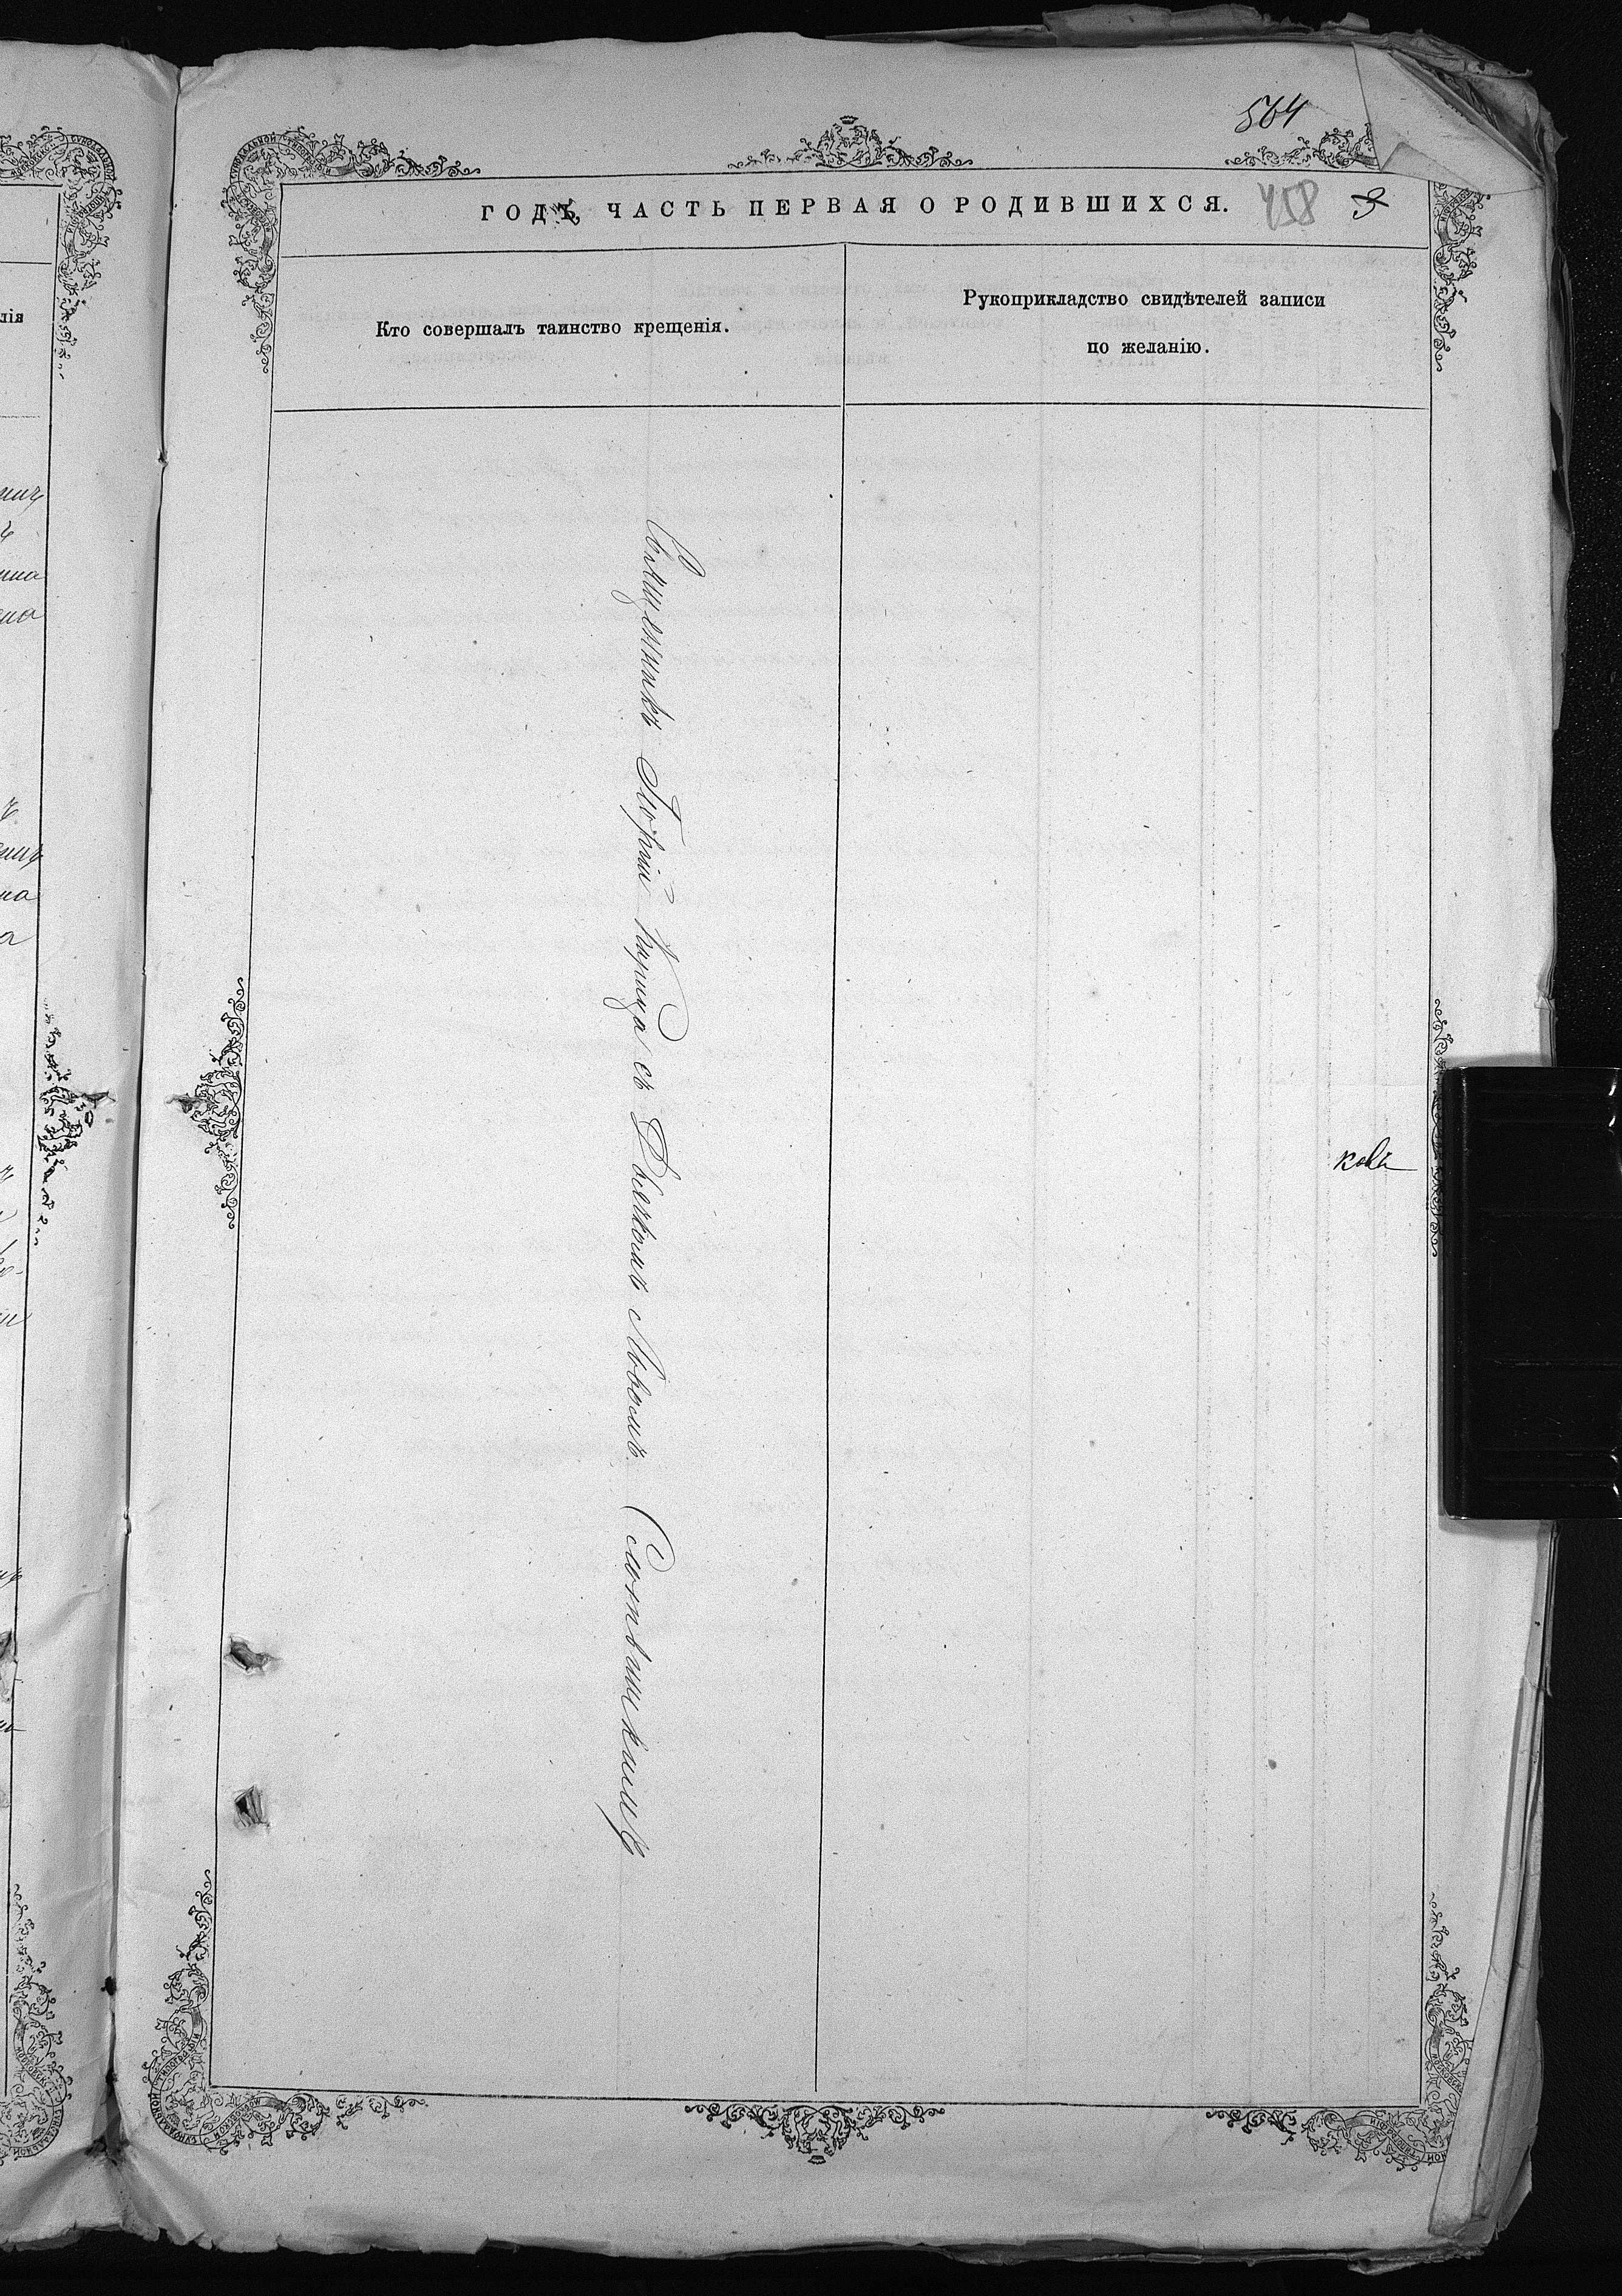 564
ГОДЪ, ЧАСТЬ ПЕРВАЯ О РОДИВШИХСЯ. 458
Кто совершалъ таинство крещенія.
Рукоприкладство свидѣтелей записи
по желанію.
Священникъ Георгій Карица съ Дьячкомъ Львомъ Слюнышкинымъ
кова
лія